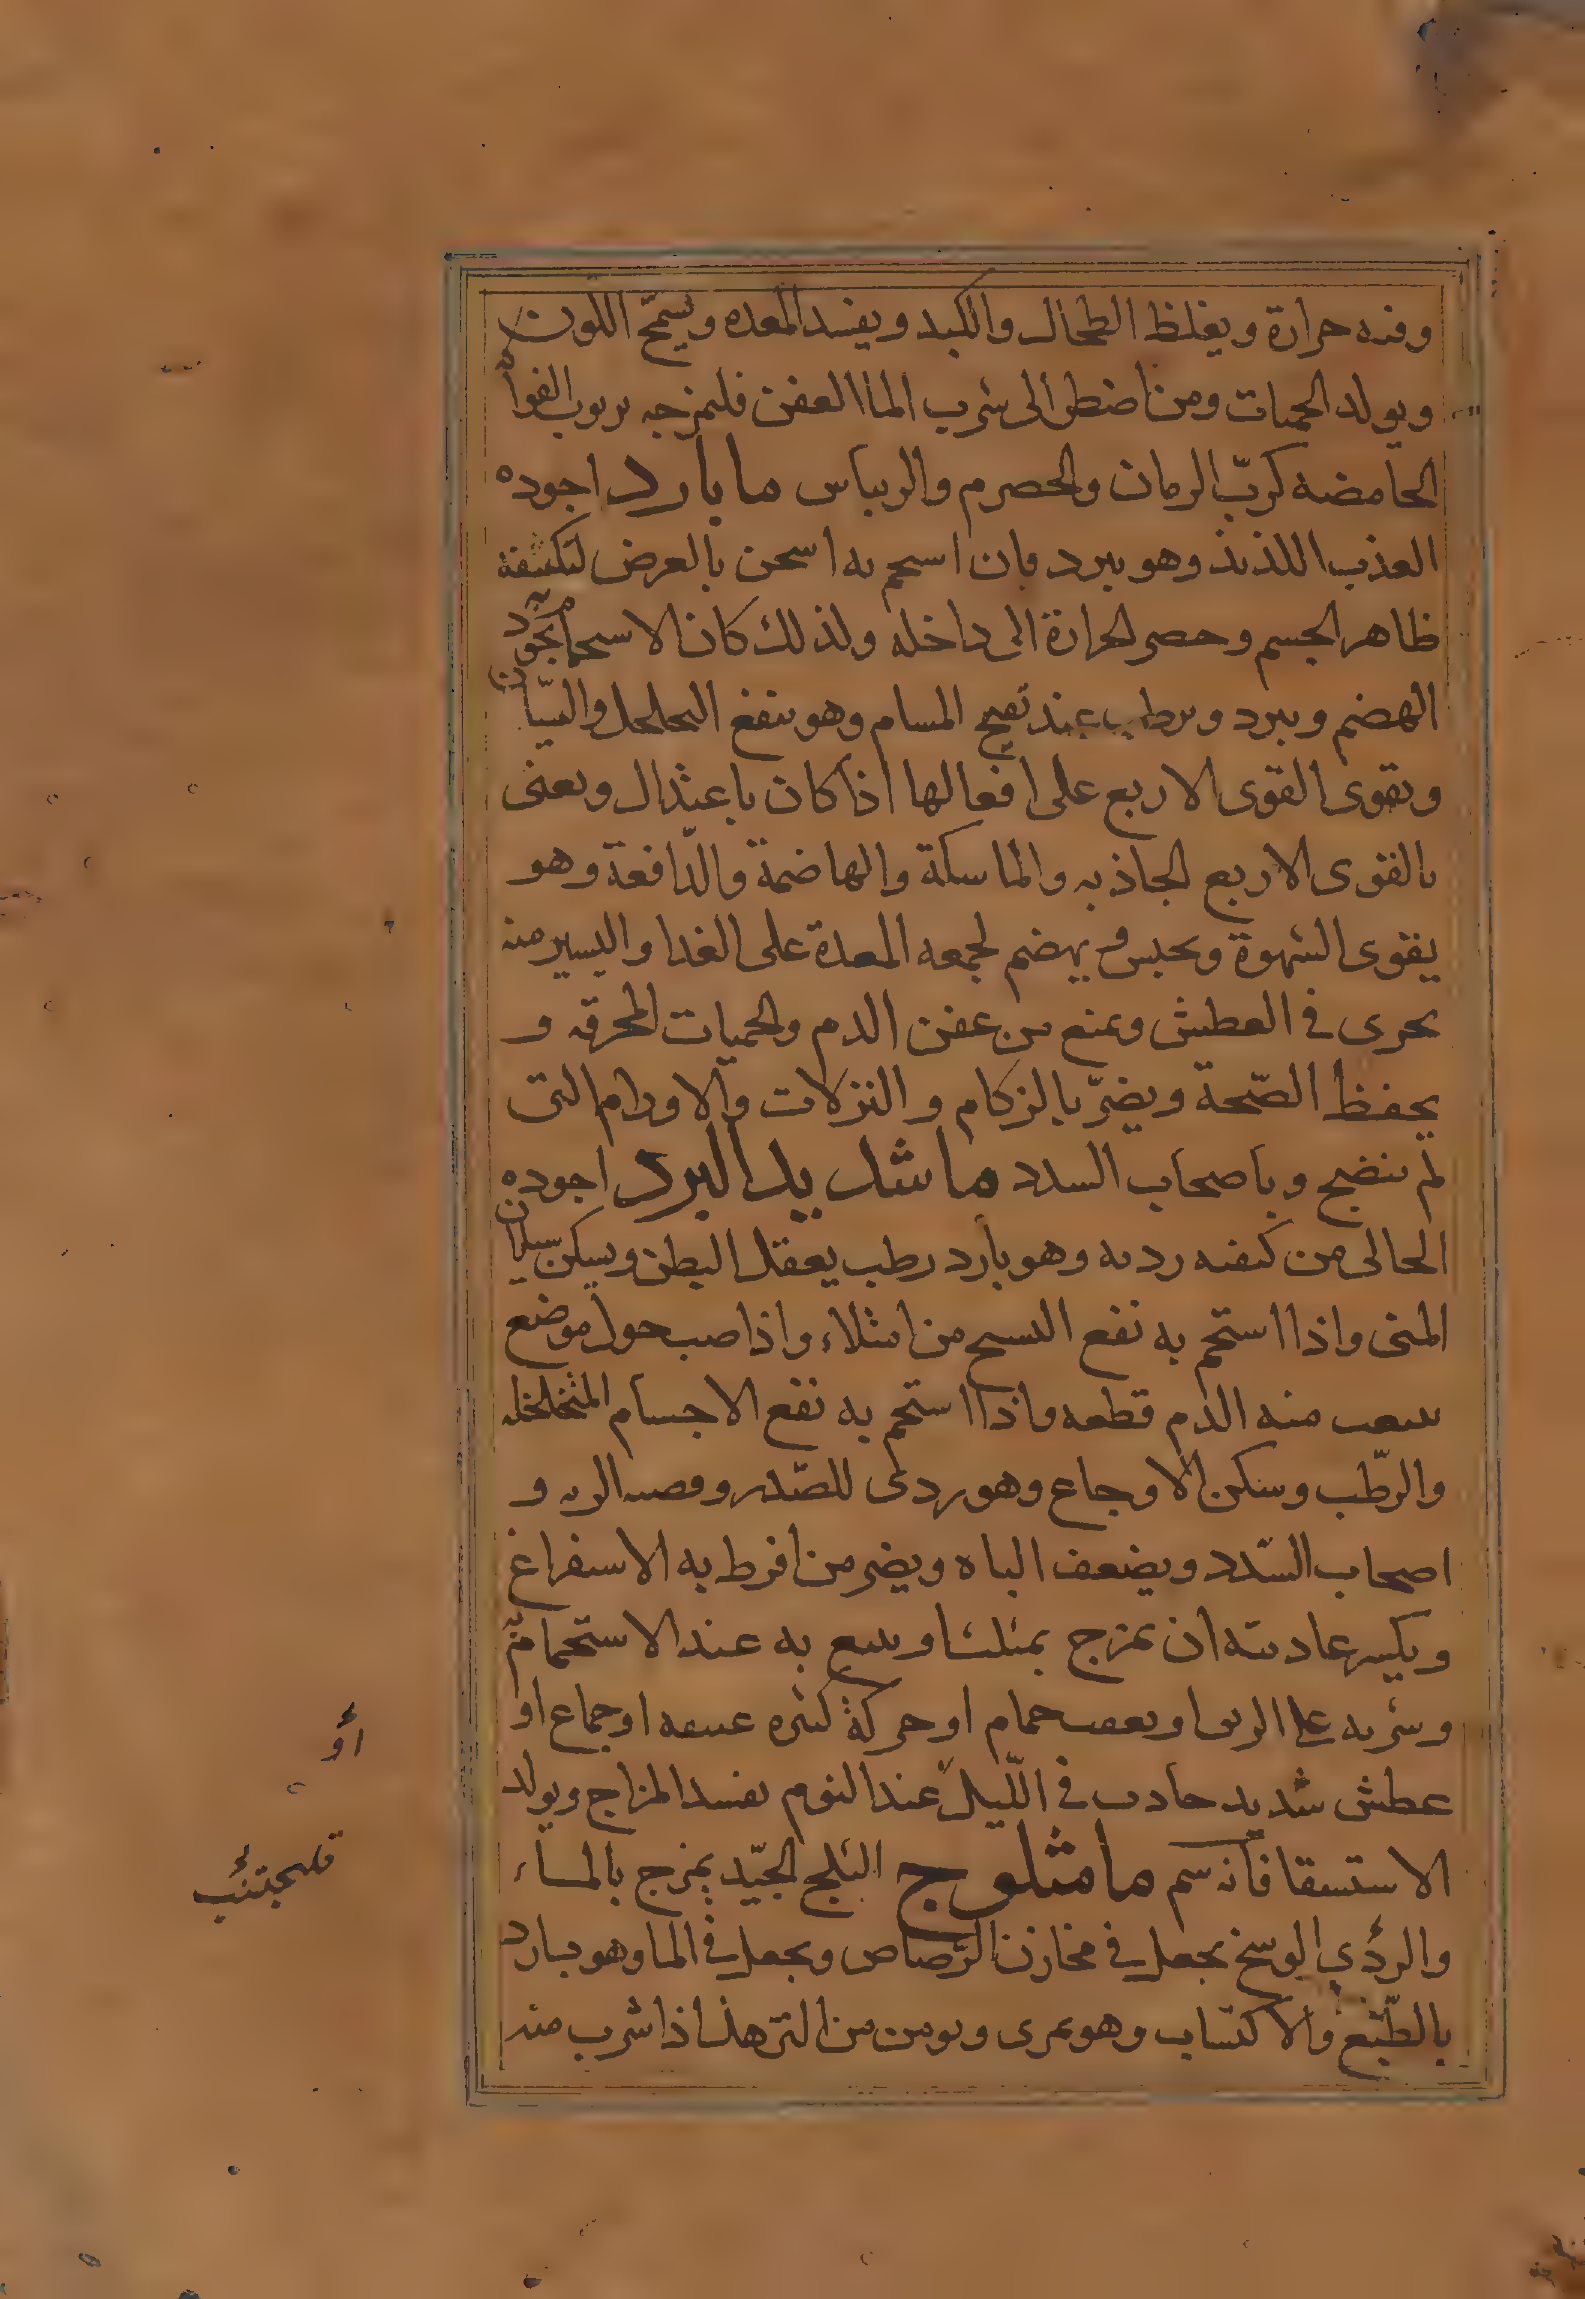 وفيه حرارة ويغلظ الطحال والكبد ويفسد المعده ويسمّج اللون
ويولد الحميات ومن اضطر الى شرب الماء العفن فليمزجه بربوب الفواكه
الحامضه كربّ الرمان والحصرم والريباس ما بارد اجوده
العذب اللذيذ وهو يبرد فان استحم به اسخن بالعرض لتكثيفه
ظاهر الجسم وحصر الحرارة الى داخله ولذلك كان الاستحمام به يجوّد
الهضم ويبرد ويرطب عند تفتيح المسام وهو ينفع التخلخل والسيلان
ويقوى القوى الاربع على افعالها اذا كان باعتدال ويعنى
بالقوى الاربع الجاذبه والماسكة والهاضمة والدّافعة وهو
يقوى الشهوة ويحبس ويهضم لجمعه المعدة على الغدا واليسير منه
يجزى في العطش ويمنع من عفن الدم والحميات المحرقه و
يحفظ الصّحة ويضرّ بالزكام والنزلات والاورام التى
لم تنضج وباصحاب السدد ما شديد البرد اجوده
الخالى من كيفيه رديه وهو بارد رطب يعقل البطن ويسكن سيلان
المنى واذا استحم به نفع التشنج من امتلاء واذا صب حول موضع
ينبعث منه الدم قطعه واذا استحم به نفع الاجسام المتخلخله
والرّطب وسكن الاوجاع وهو ردى للصّدر وقصبه الريه و
اصحاب السّدد ويضعف الباه ويضر من افرط به الاستفراغ
ويكسر عاديته ان يمزج بمثلثا به عند الاستحمام منه
وشربه على الريق او بعقب حمام او حركة كثيره عنيفه او جماع او
عطش شديد حادث في اللّيل عند النوم يفسد المزاج ويولد
الاستسقا فانه سم ما مثلوج الثلج الجيّد يمزج بالماء
والردّي الوسخ يجعل في مخازن الرّصاص ويجعل في الما وهو بارد
بالطّبع والاكتساب وهو يمرى ويومن من الترهل اذا شرب منه
أو
فليجتنب